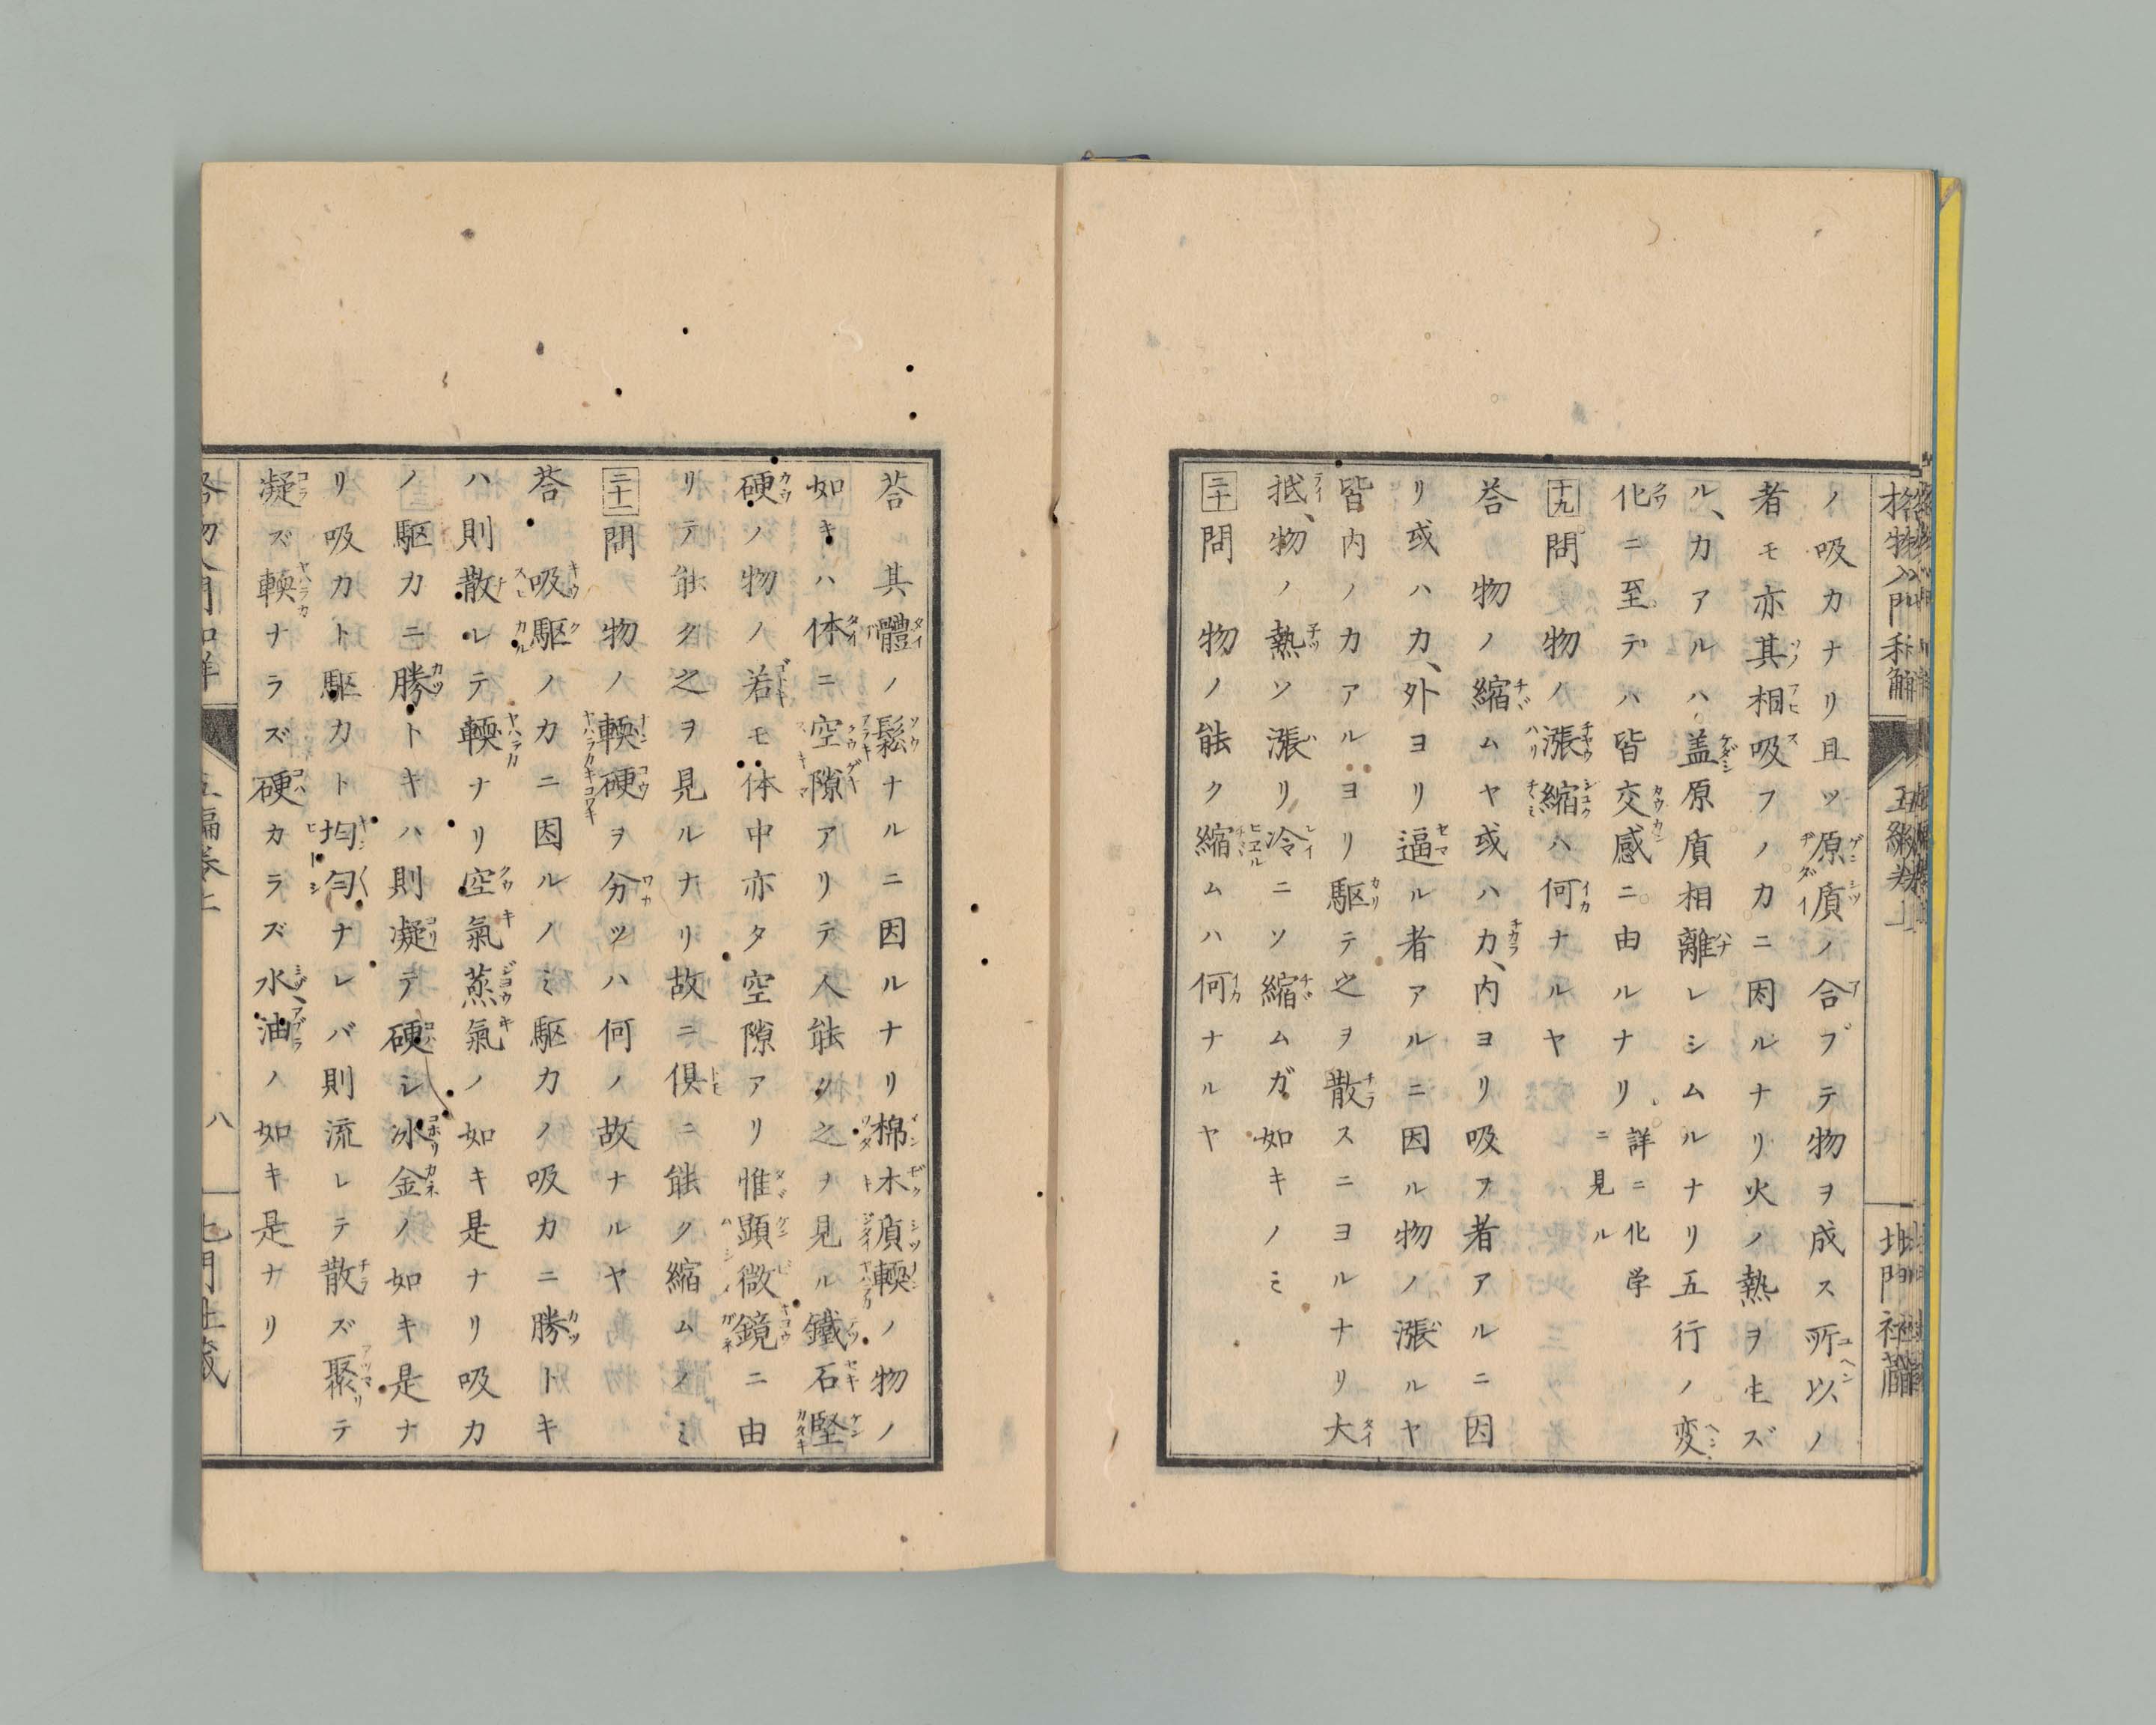 格物入門和解 五編巻上 北門社蔵
ノ吸力ナリ且ツ原質ノ合ブテ物ヲ成ス所以ノ
者モ亦其相吸フノ力ニ因ルナリ火ノ熱ヲ生ズ
ル、力アルハ盖原質相離レシムルナリ五行ノ変
化ニ至テハ皆交感ニ由ルナリ 詳ニ化学ニ見ル
十九 問 物ノ漲縮ハ何ナルヤ
答 物ノ縮ムヤ或ハ力、内ヨリ吸フ者アルニ因
リ或ハ力、外ヨリ逼ル者アルニ因ル物ノ漲ルヤ
皆内ノ力アルヨリ駆テ之ヲ散スニヨルナリ大
抵、物ノ熱ソ漲リ冷ニソ縮ムガ如キノミ
二十 問 物ノ能ク縮ムハ何ナルヤ
答 其體ノ鬆ナルニ因ルナリ棉木質輭ノ物ノ
如キハ体ニ空隙アリテ人能ク之ヲ見ル鐵石堅
硬ノ物ノ若モ体中亦タ空隙アリ惟顕微鏡ニ由
リテ能ク之ヲ見ルナリ故ニ倶ニ能ク縮ムノミ
二十一 問 物ノ輭硬ヲ分ツハ何ノ故ナルヤ
答 吸駆ノ力ニ因ルノミ駆力ノ吸力ニ勝トキ
ハ則散レテ輭ナリ空氣蒸氣ノ如キ是ナリ吸力
ノ駆力ニ勝トキハ則凝テ硬シ冰金ノ如キ是ナ
リ吸力ト駆力ト均匀ナレバ則流レテ散ズ聚リテ
凝ズ輭ナラズ硬カラズ水、油ノ如キ是ナリ
格物入門和解 五編巻上 八 北門社蔵